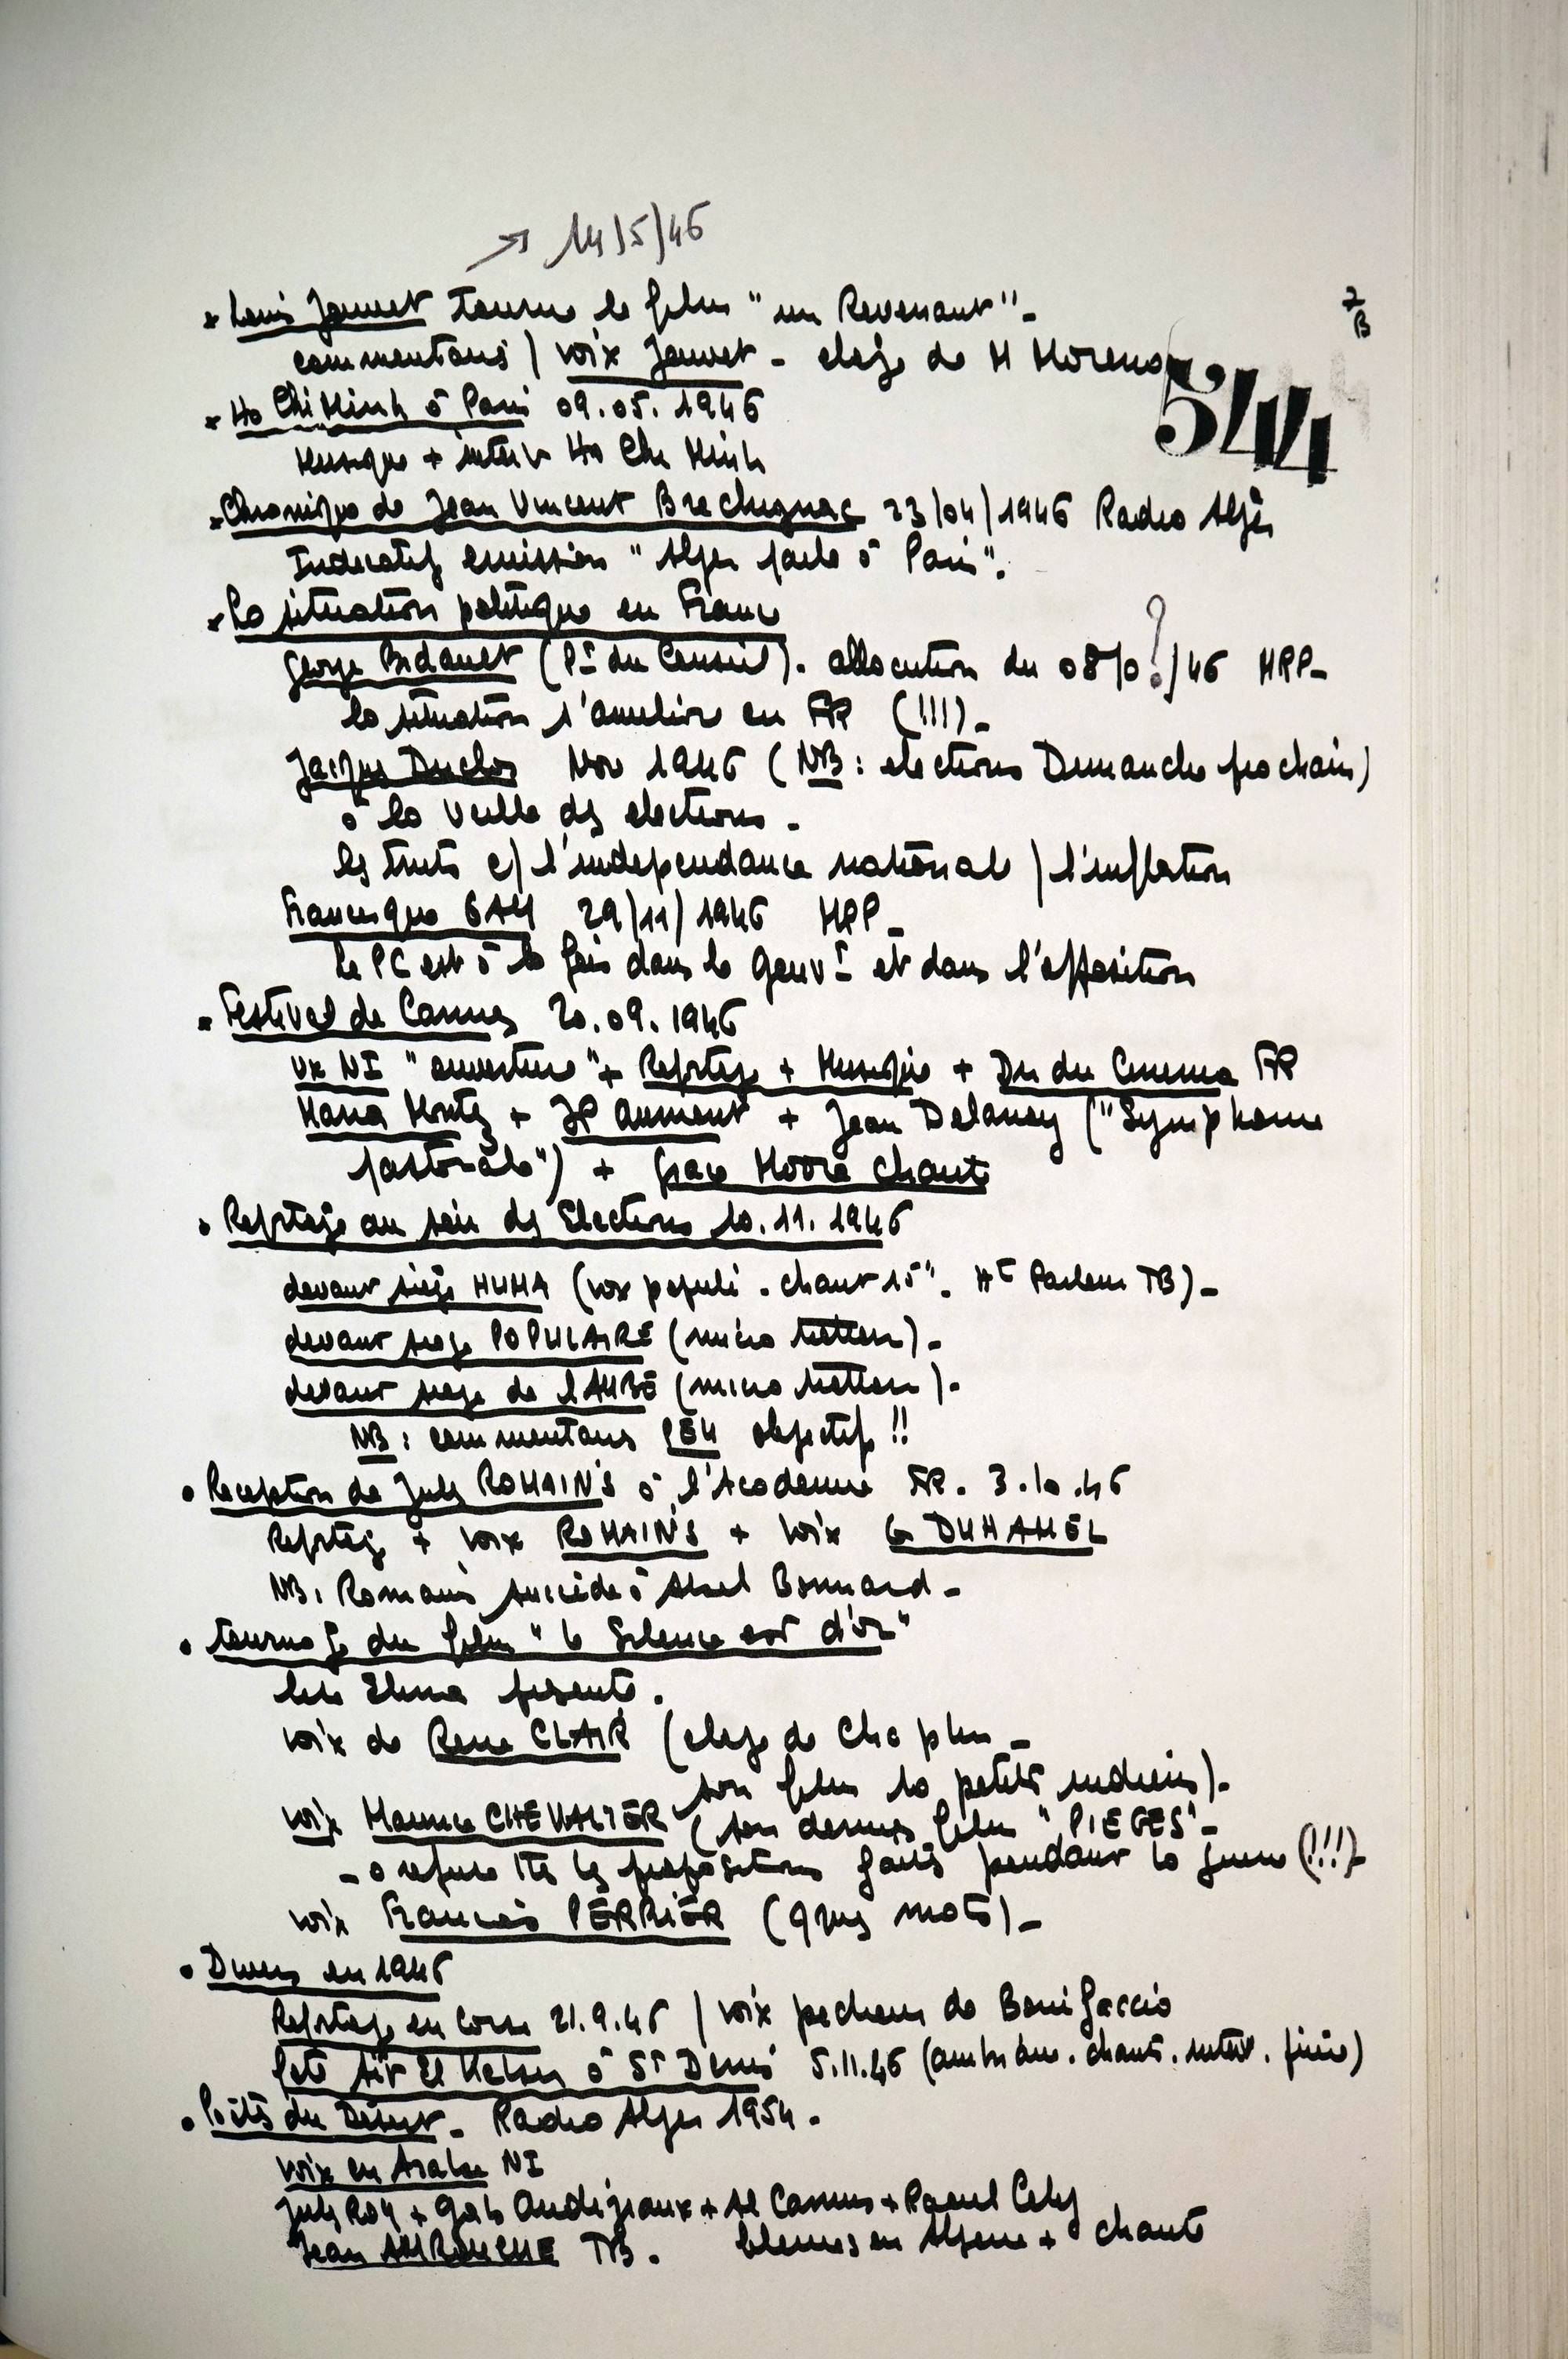 → 14/5/46
* Louis Jouvet tourne le film "un Revenant" -
7/B
commentaires / voix Jouvet - eloge de M Moreno
544
* Ho Chi Minh à Paris 09.05.1946
Musique + interv Ho Chi Minh
* Chronique de Jean Vincent Brechignac 23/04/1946 Radio Alger
Indicatif emission "Alger parle à Paris".
* La situation politique en France
George Bidault (Pt du Conseil). allocution du 08/0?/46 MRP -
la situation s'améliore en FR (!!!) -
Jacques Duclos Nov 1946 (NB : elections Dimanche prochain)
à la veille des elections -
les trusts c/ l'independance nationale / l'inflation
Francisque GAY 29/11/1946 MRP -
Le PC est à la fois dans le Gouvt et dans l'opposition
* Festival de Cannes 20.09.1946
Vx NI "ouverture" + Reportage + Musique + Dir du Cinema FR
Maria Montez + JP Aumont + Jean Delannoy ("Symphonie
pastorale") + Grace Moore chante
• Reportage au soir des Elections 10.11.1946
devant siège HUMA (vox populi . chant 15". Ht Parleur TB) -
devant siege POPULAIRE (micro trottoir) -
devant siege de l'AUBE (micro trottoir) -
NB : commentaires PEU objectifs !!
• Reception de Jules ROMAINS à l'Academie FR. 3.10.46
Reportage + voix ROMAINS + voix G DUHAMEL
NB : Romains succède à Abel Bonnard -
• tournage du film "le Silence est d'or"
Lise Elina presente.
voix de Rene CLAIR (eloge de Chaplin -
son film 10 petits indiens) -
voix Maurice CHEVALIER (son dernier film "PIEGES" -
- a refusé ttes les propositions faites pendant la guerre (!!!) -
voix Francois PERRIER (qques mots) -
• Divers en 1946
Reportage en Corse 21.9.46 / voix pecheurs de Bonifaccio
fete Aït El Kebir à St Denis 5.11.46 (ambiance. chants. interv. prière)
• Poètes du Desert - Radio Alger 1954 -
Voix en Arabe NI
Jules ROY + Gab Audisiaux + Al Camus + Raoul Celly
Jean AMROUCHE TB. en Algerie + chants